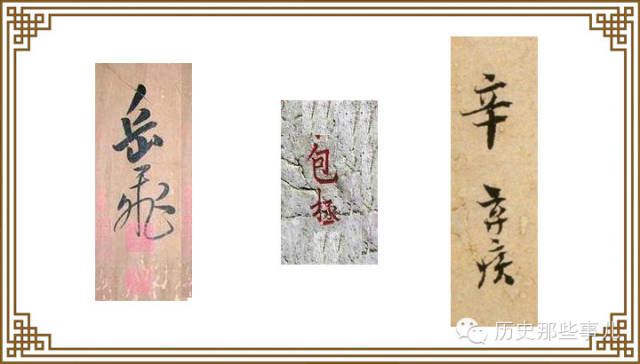 岳飛
包拯
辛棄疾
历史那些事儿